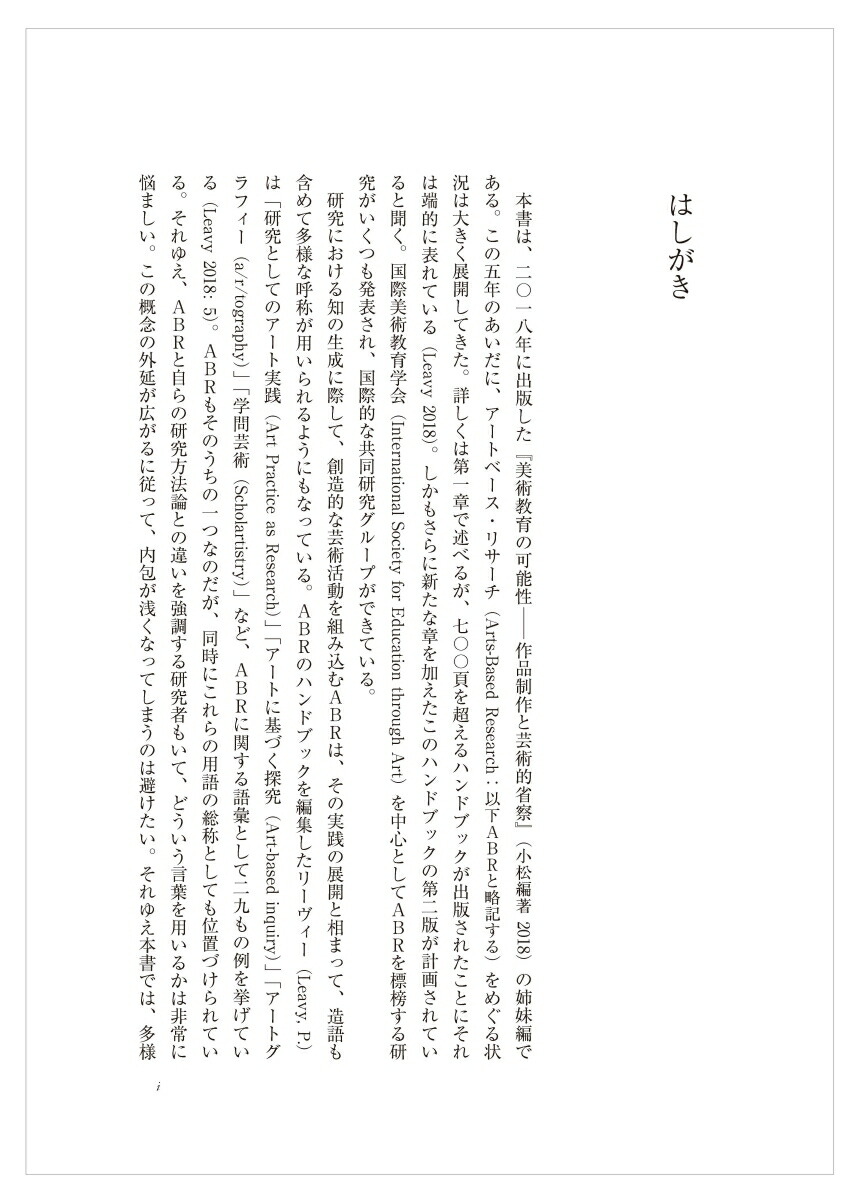 はしがき
本書は、二〇一八年に出版した『美術教育の可能性――作品制作と芸術的省察』（小松編著 2018）の姉妹編で
ある。この五年のあいだに、アートベース・リサーチ（Arts-Based Research：以下ＡＢＲと略記する）をめぐる状
況は大きく展開してきた。詳しくは第一章で述べるが、七〇〇頁を超えるハンドブックが出版されたことにそれ
は端的に表れている（Leavy 2018）。しかもさらに新たな章を加えたこのハンドブックの第二版が計画されてい
ると聞く。国際美術教育学会（International Society for Education through Art）を中心としてＡＢＲを標榜する研
究がいくつも発表され、国際的な共同研究グループができている。
研究における知の生成に際して、創造的な芸術活動を組み込むＡＢＲは、その実践の展開と相まって、造語も
含めて多様な呼称が用いられるようにもなっている。ＡＢＲのハンドブックを編集したリーヴィー（Leavy, P.）
は「研究としてのアート実践（Art Practice as Research）」「アートに基づく探究（Art-based inquiry）」「アートグ
ラフィー（a/r/tography）」「学問芸術（Scholartistry）」など、ＡＢＲに関する語彙として二九もの例を挙げてい
る（Leavy 2018: 5）。ＡＢＲもそのうちの一つなのだが、同時にこれらの用語の総称としても位置づけられてい
る。それゆえ、ＡＢＲと自らの研究方法論との違いを強調する研究者もいて、どういう言葉を用いるかは非常に
悩ましい。この概念の外延が広がるに従って、内包が浅くなってしまうのは避けたい。それゆえ本書では、多様
i